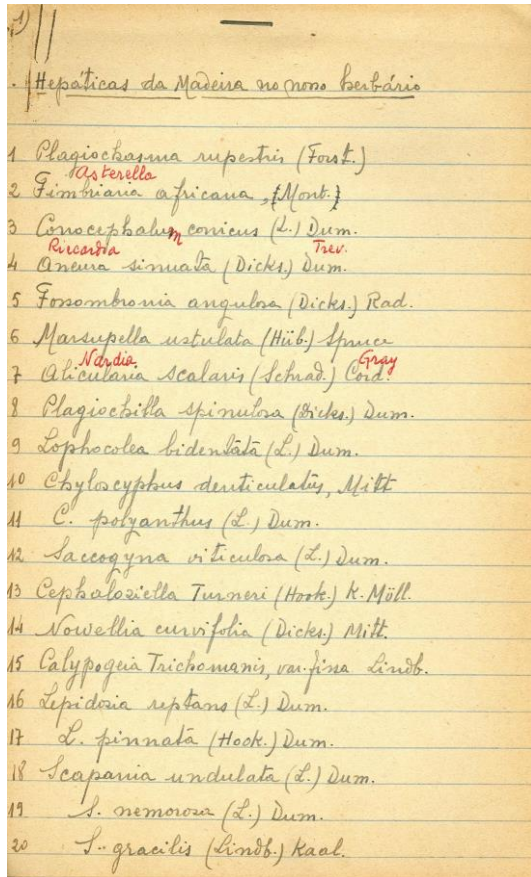 1)
. Hepáticas da Madeira no nosso herbário
1 Plagiochasma rupestris (Forst.)
Asterella
2 Fimbriaria africana, (Mont.)
3 Conocephalum conicus (L.) Dum.
Riccardia Trev.
4 Aneura sinuata (Dicks.) Dum.
5 Fossombronia angulosa (Dicks.) Rad.
6 Marsupella ustulata (Hüb.) Spruce
Nardia Gray
7 Alicularia scalaris (Schrad.) Cord.
8 Plagiochilla spinulosa (Dicks.) Dum.
9 Lophocolea bidentata (L.) Dum.
10 Chyloscyphus denticulatus, Mitt
11 C. polyanthus (L.) Dum.
12 Saccogyna viticulosa (L.) Dum.
13 Cephaloziella Turneri (Hook.) K. Müll.
14 Nowellia curvifolia (Dicks.) Mitt.
15 Calypogeia Trichomanis, var. fissa Lindb.
16 Lepidozia reptans (L.) Dum.
17 L. pinnata (Hook.) Dum.
18 Scapania undulata (L.) Dum.
19 S. nemorosa (L.) Dum.
20 S. gracilis (Lindb.) Kaal.